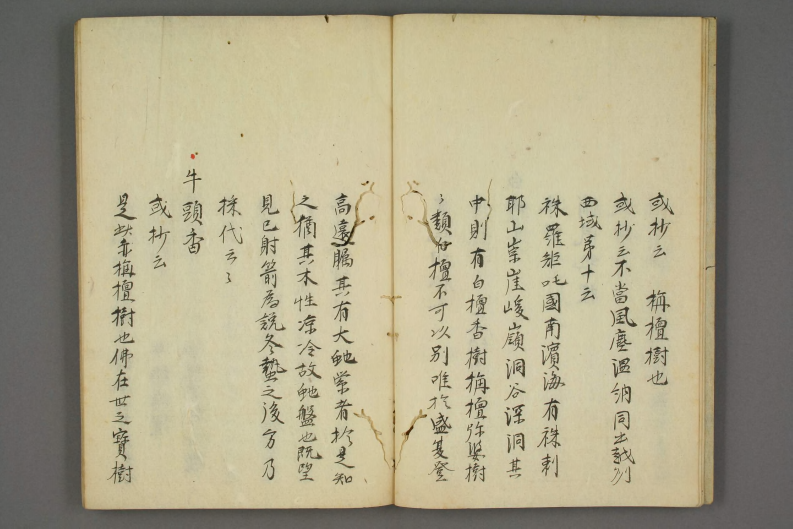 或抄云 栴檀樹也
或抄云不當風塵温納同出越列
西域第十云
秣羅矩吒國南濱海有秣剌
耶山崇崖峻嶺洞谷深澗其
中則有白檀香樹栴檀你婆樹
〻類白檀不可以別唯於盛夏登
高遠矚其有大虵縈者於是知
之猶其木性凉冷故虵盤也既望
見已射箭為記冬蟄之後方乃
採代云〻
牛頭香
或抄云
是此赤栴檀樹也佛在世之寳樹